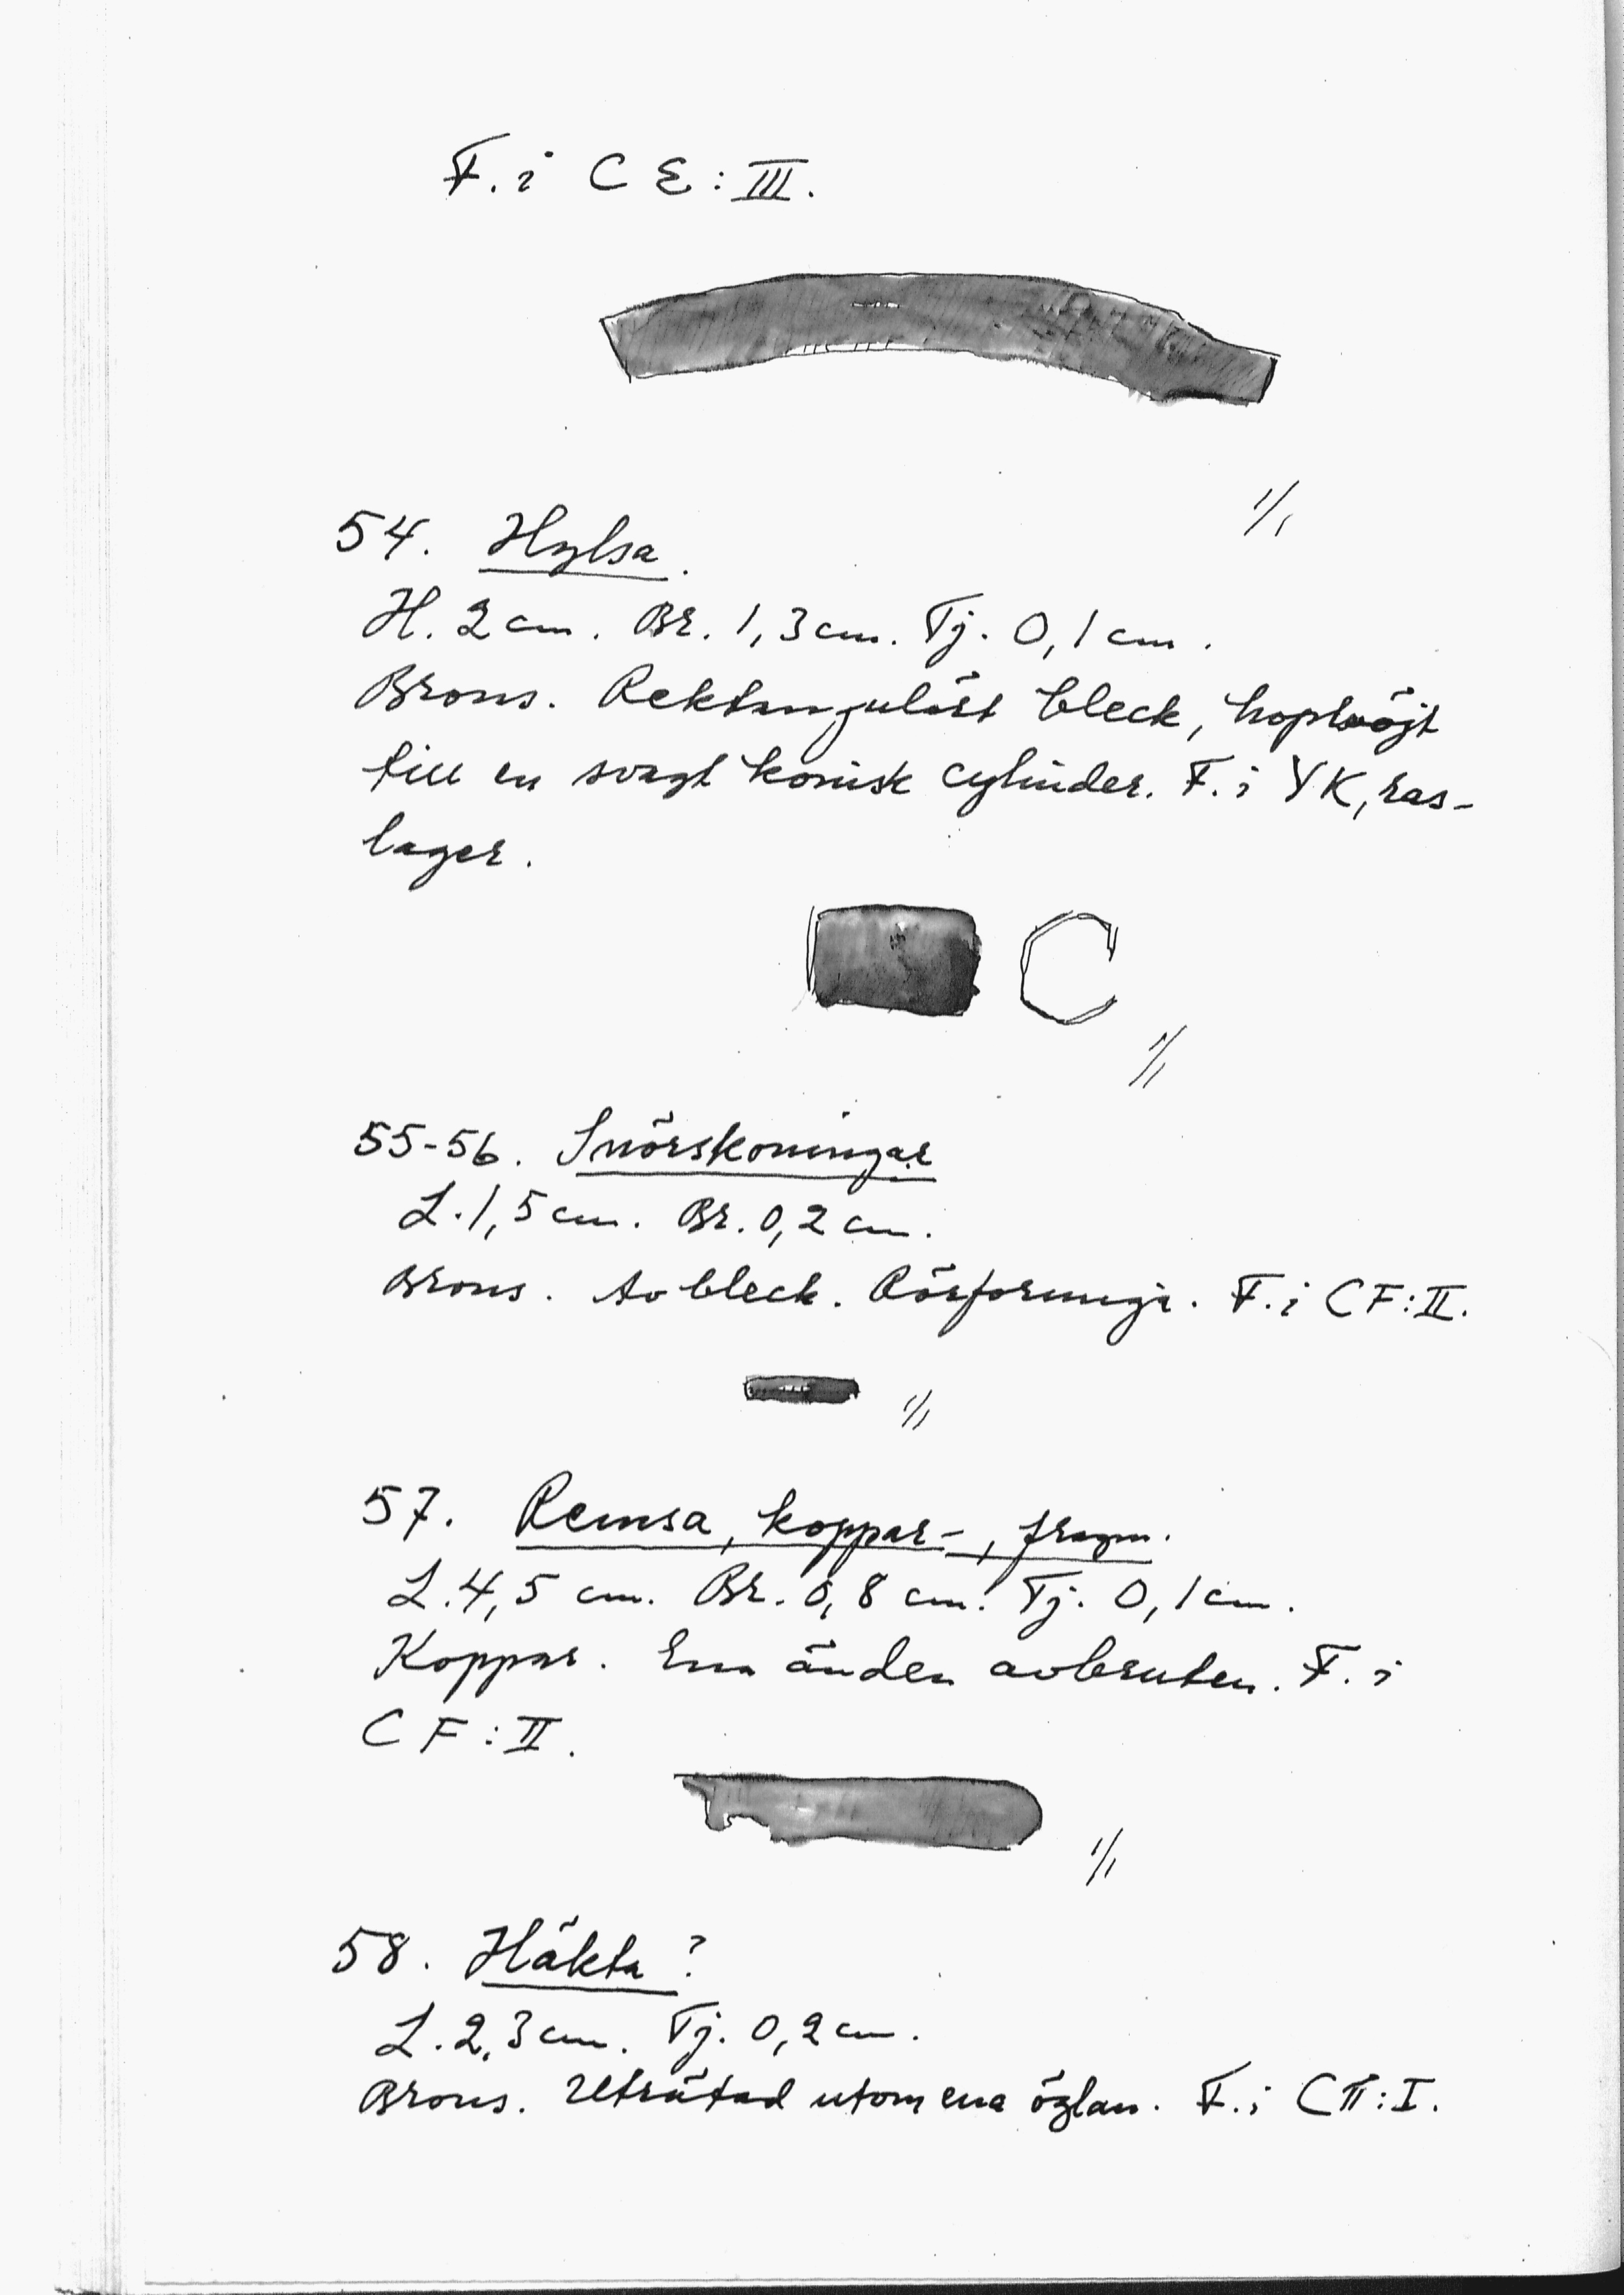 F. i C E : III.
1/1
54. Hylsa.
H. 2 cm. Br. 1,3 cm. Tj. 0,1 cm.
Brons. Rektangulärt bleck, hopböjt
till en svagt konisk cylinder. F. i YK, ras-
lager.
1/1
55-56. Snörskoningar
L. 1,5 cm. Br. 0,2 cm.
Brons. Av bleck. Rörformiga. F. i CF:II.
1/1
57. Remsa, koppar-, fragm.
L. 4,5 cm. Br. 0,8 cm. Tj. 0,1 cm.
Koppar. Ena änden avbruten. F. i
C F : II.
1/1
58. Häkta?
L. 2,3 cm. Tj. 0,2 cm.
Brons. Uträtad utom ena öglan. F. i :I.